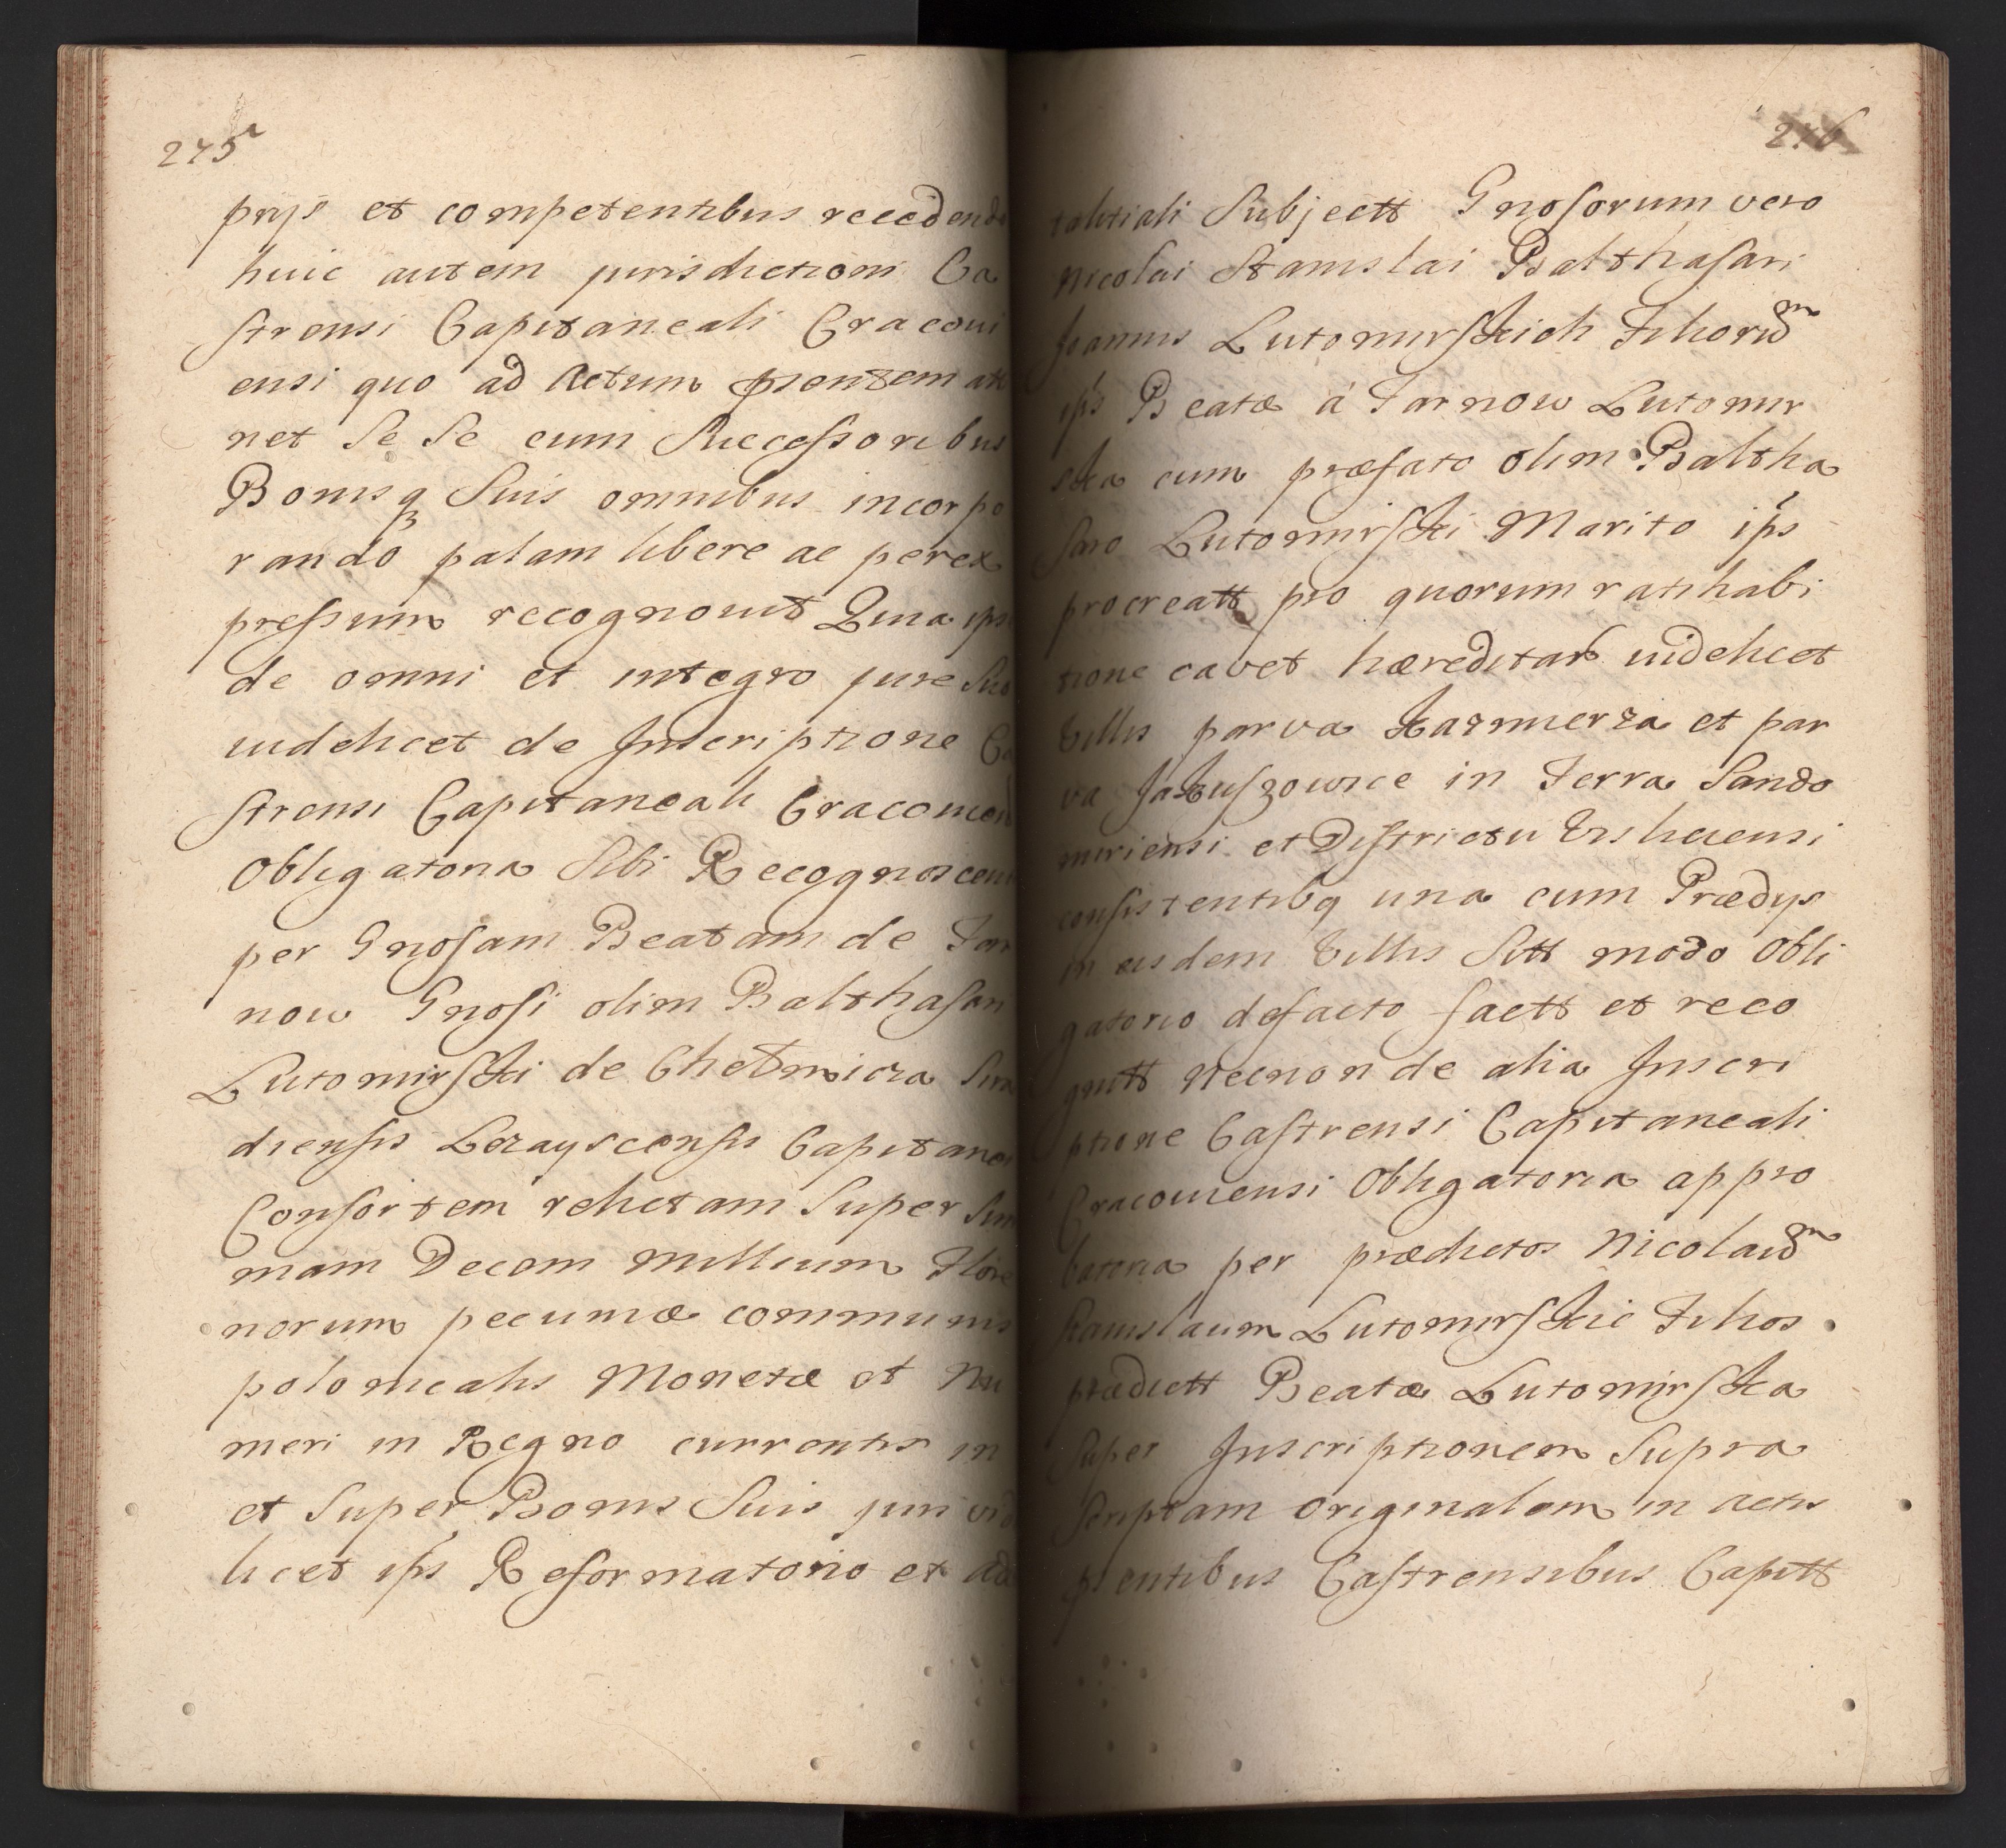 275
prijs et competentibus recedendo
huic autem jurisdictioni Ca
strensi Capitaneali Cracovi
ensi quo ad Actum pientem atti
net Se Se cum Successoribus
Bonisq Suis omnibus incorpo
rando palam libere ac perex
pressum recognovit Quia ips
de omni et integro jure Suo
videlicet de Inscriptione Ca
strensi Capitaneali Cracovien
Obligatoria Sibi Recognoscenti
per Gnosam Beatam de Tar
now Gnosi olim Balthasari
Lutomirski de Chełmicza Sira
diensis Lezayscensis Capitanei
Consortem relictam Super Sum
mam Decem Millium Flore
norum pecuniæ communis
polonicalis Monetæ et Nu
meri in Regno currentis in
et Super Bonis Suis juri vide
licet ips Reformatorio et ad
276
talitiali Subjectt Gnosorum vero
Nicolai Stanislai Balthasari
Joannis Lutomirskich Filiorum
ips Beatæ à Tarnow Lutomir
ska cum præfato olim Baltha
saro Lutomirski Marito ips
procreatt pro quorum ratihabi
tione cavet hæreditar videlicet
Villis parva Kazmierza et par
va Jakuszowice in Terra Sando
miriensi et Districtu Visliciensi
consistentibq una cum Prædys
in eisdem Villis Sitt modo Obli
gatorio defacto factt et reco
gnitt Necnon de alia Inscri
ptione Castrensi Capitaneali
Cracoviensi Obligatoria appro
batoria per prædictos Nicolaum
Stanislaum Lutomirskie Filios
prædictt Beatæ Lutomirska
Super Inscriptionem Supra
Scriptam originalem in Actis
pientibus Castrensibus Capitt